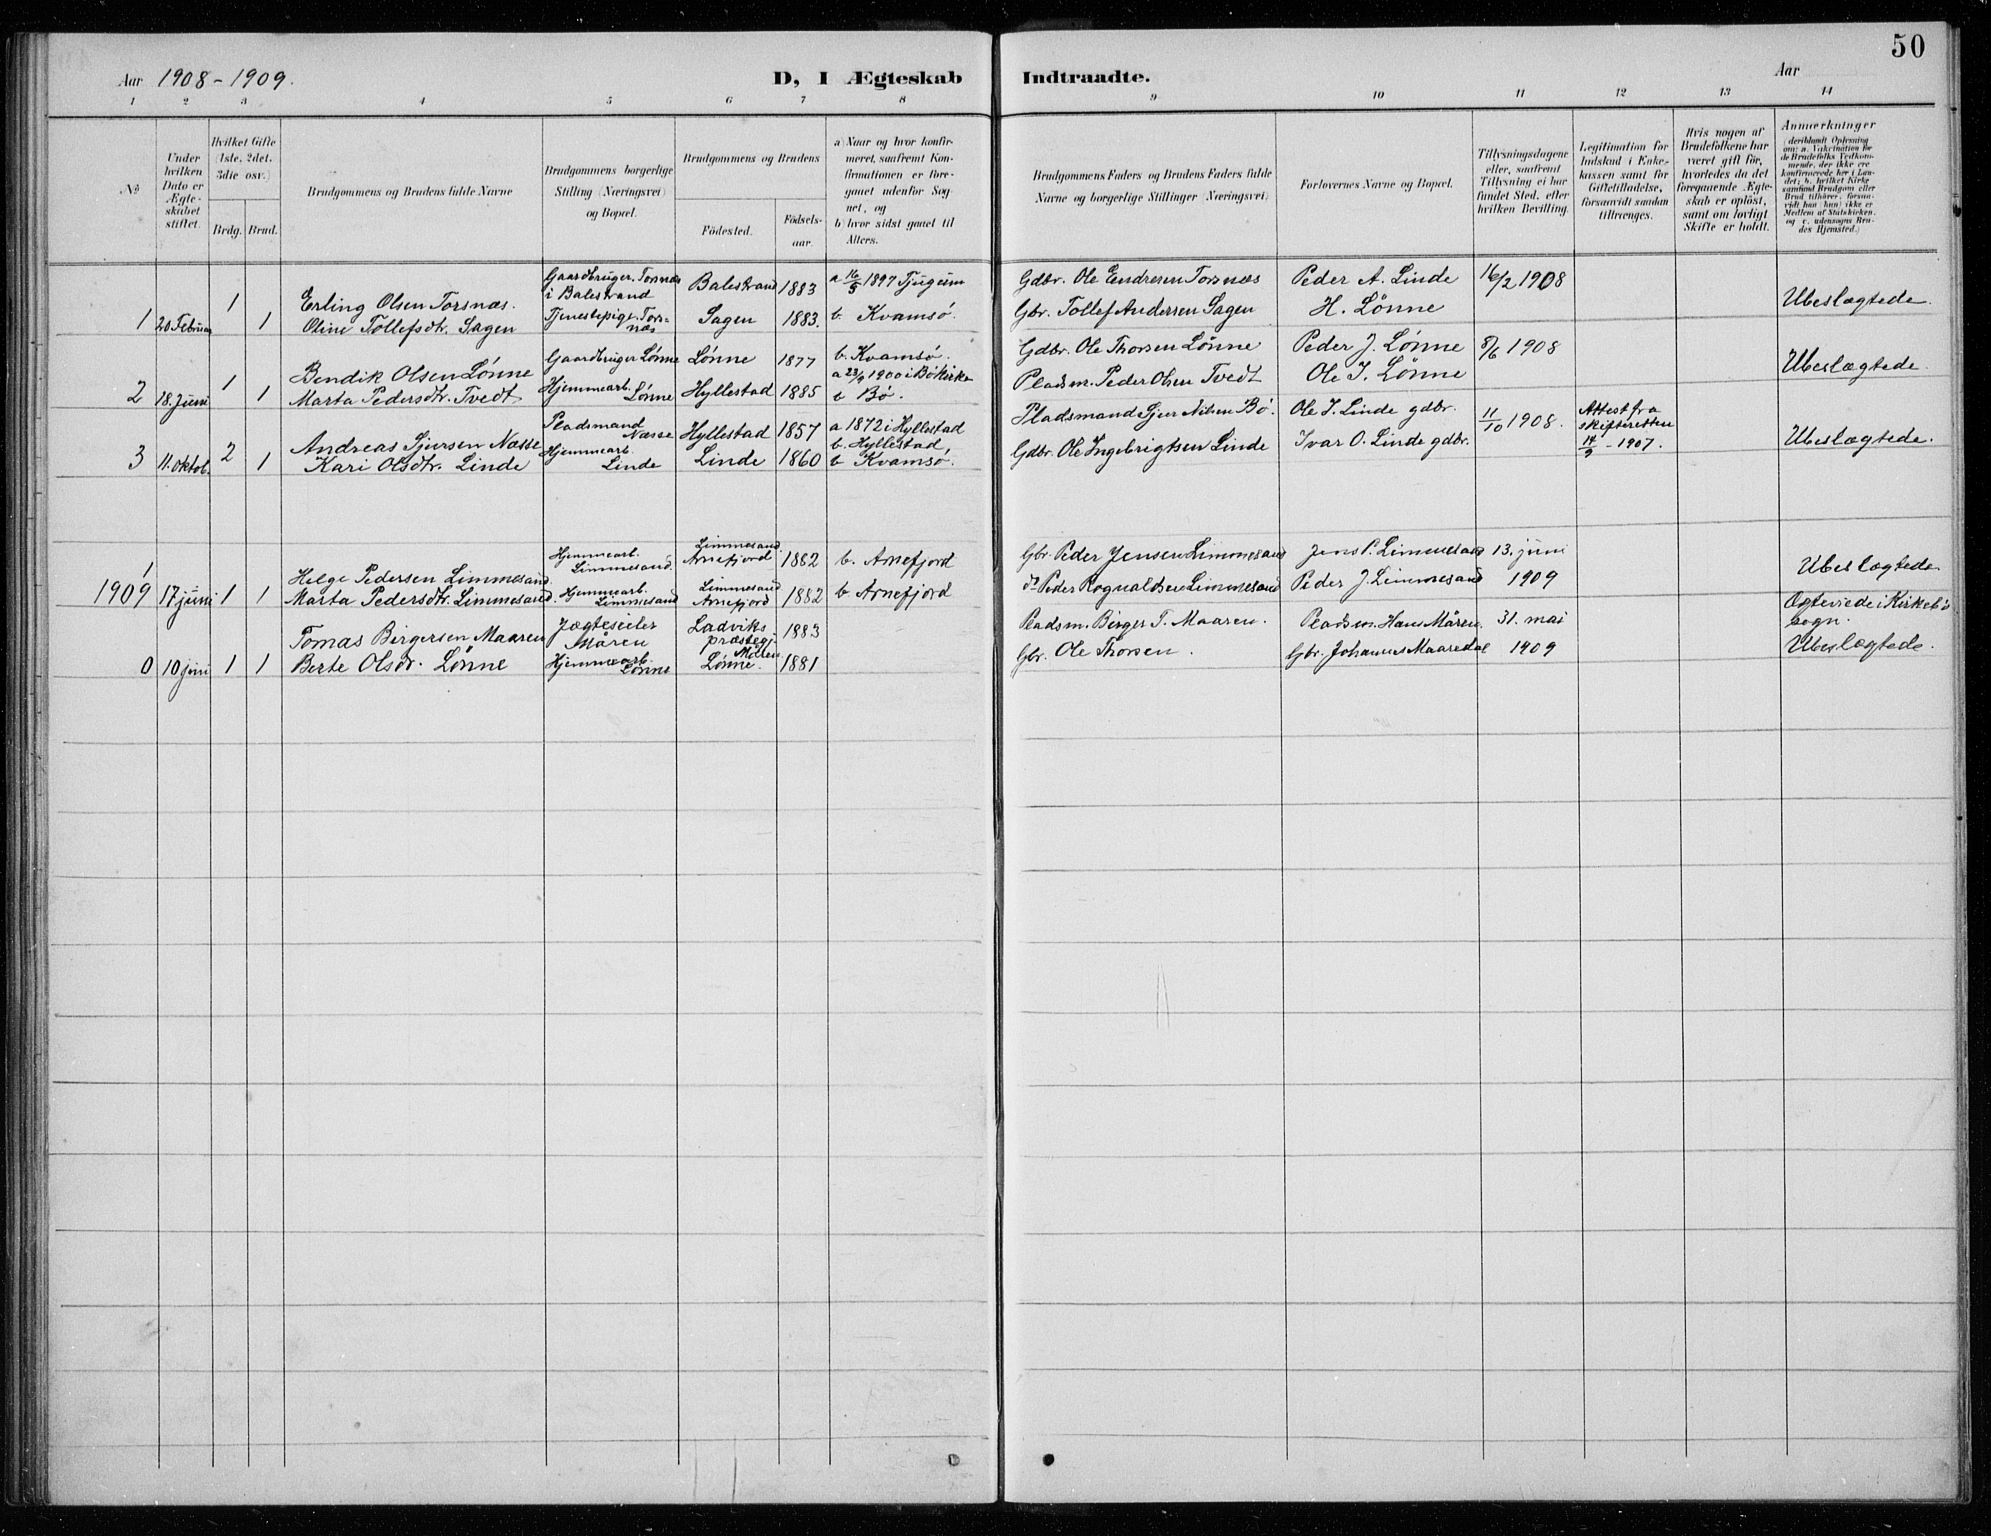 50
Aar 1908-1909.
D, I Ægteskab Indtraadte.
Aar
1 2 3 4 5 6 7 8 9 10 11 12 13 14
No
Under hvilken Dato er Ægteskabet stiftet.
Hvilket Gifte (1ste, 2det, 3die osv.)
Brdg. Brud.
Brudgommens og Brudens fulde Navne
Brudgommens borgerlige Stilling (Næringsvei) og Bopæl.
Brudgommens og Brudens
Fødested.
Fødselsaar.
a) Naar og hvor konfirmeret, saafremt Konfirmationen er foregaaet udenfor Sognet, og
b) hvor sidst gaaet til Alters.
Brudgommens Faders og Brudens Faders fulde Navne og borgerlige Stillinger (Næringsvei)
Forlovernes Navne og Bopæl.
Tillysningsdagene eller, saafremt Tillysning ei har fundet Sted, efter hvilken Bevilling.
Legitimation for Indskud i Enkekassen samt for Giftetilladelse, forsaavidt saadan tiltrænges.
Hvis nogen af Brudefolkene har været gift før, hvorledes da det foregaaende Ægteskab er opløst, samt om lovligt Skifte er holdt.
Anmærkninger
(deriblandt Oplysning om: a. Vakcination for de Brudefolks Vedkommende, der ikke ere konfirmerede her i Landet; b. hvilket Kirkesamfund Brudgom eller Brud tilhører, forsaavidt han (hun) ikke er Medlem af Statskirken, og c. udensogns Brudes Hjemsted.)
1 20 Februar 1 Erling Olsen Torsnæs. Gaardbruger. Torsnæs i Balestrand Balestrand 1883 a 16/5 1897 Tjugum Gdbr. Ole Endresen Torsnæs Peder A. Linde 16/2 1908
1 Oline Tollefsdtr. Sagen Tjenestepige. Torsnæs Sagen 1883. b Kvamsø. Gbr. Tollef Andersen Sagen H. Lønne Ubeslægtede.
2 18. Juni 1 Bendik Olsen Lønne Gaardbruger Lønne Lønne 1877 b. Kvamsø. Gdbr. Ole Thorsen Lønne Peder J. Lønne 8/6 1908 Ubeslægtede
1 Marta Pedersdtr. Tvedt Hjemmearb. Lønne Hyllestad 1885 a 23/9 1900 i Bø Kirke b Bø. Pladsm. Peder Olsen Tvedt Ole J. Lønne
3 11. Oktob. 2 Andreas Sjursen Næsse Pladsmand Næsse Hyllestad 1857 a 1872 i Hyllestad b. Hyllestad Pladsmand Sjur Nilsen Bø. Ole J. Linde gdbr. 11/10 1908. Attest fra skifteretten 14/9 - 1907.
1 Kari Olsdtr. Linde Hjemmearb. Linde Linde 1860 b Kvamsø. Gdbr. Ole Ingebrigtsen Linde Ivar O. Linde gdbr. Ubeslægtede.
1
1909 17 juni 1 Helge Pedersen Limmesand. Hjemmearb. Limmesand. Limmesand Arnefjord 1882 b. Arnefjord Gbr. Peder Jensen Limmesand Jens P. Limmesand 13. juni 1909
1 Marta Pedersdtr. Limmesand. Hjemmearb. Limmesand Limmesand Arnefjord 1882 b Arnefjord do Peder Rognaldsen Limmesand Peder J. Limmesand Ubeslægtede
0 10 juni 1 Tomas Birgersen Maaren Jægteseiler Måren Ladviks præstegj. Måren 1883 Pladsm. Birger T. Maaren. Pladsm. Hans Måren. 31. mai 1909 Ægteviede i Kirkebø sogn.
1 Berte Olsdr. Lønne Hjemmearb. Lønne Lønne. 1881 Gbr. Ole Thorsen. Gbr. Johannes Maaredal Ubeslægtede.